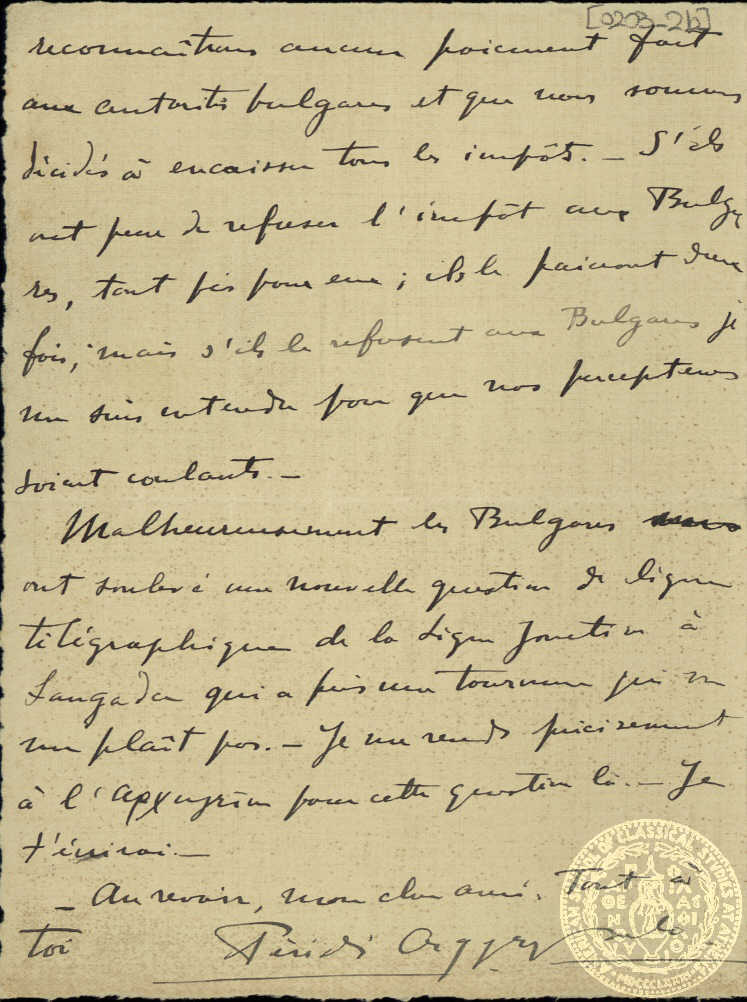 [0203-2b]
reconnaîtrons aucun paiement fait
aux autorités bulgares et que nous sommes
décidés à encaisser tous les impôts. — S'ils
ont peur de refuser l'impôt aux Bulga
res, tant pis pour eux ; ils le paieront deux
fois, mais s'ils le refusent aux Bulgares je
me suis entendu pour que nos percepteurs
soient coulants. —
Malheureusement les Bulgares
ont soulevé une nouvelle question de ligne
télégraphique de la Ligne Jonction à
Langada qui a pris une tournure qui ne
me plaît pas. — Je me rends précisement
à l' pour cette question là. — Je
t'écrirai. —
— Au revoir, mon cher ami. Tout à
toi